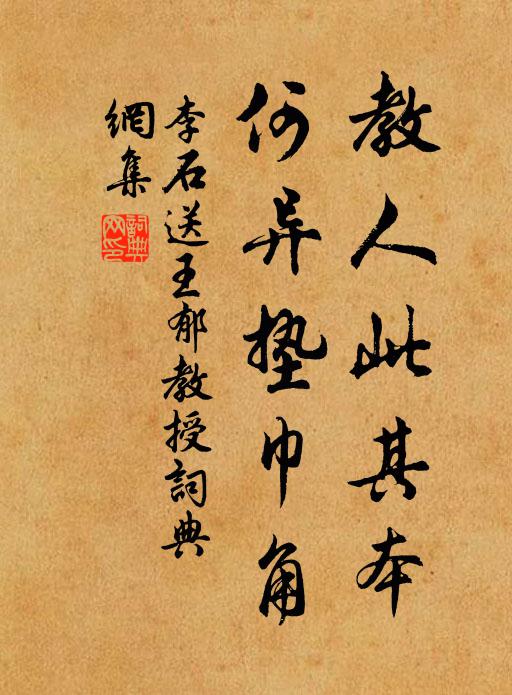 教人此其本
何异垫巾角
李石送王郁教授詞典
網集
詞典網印